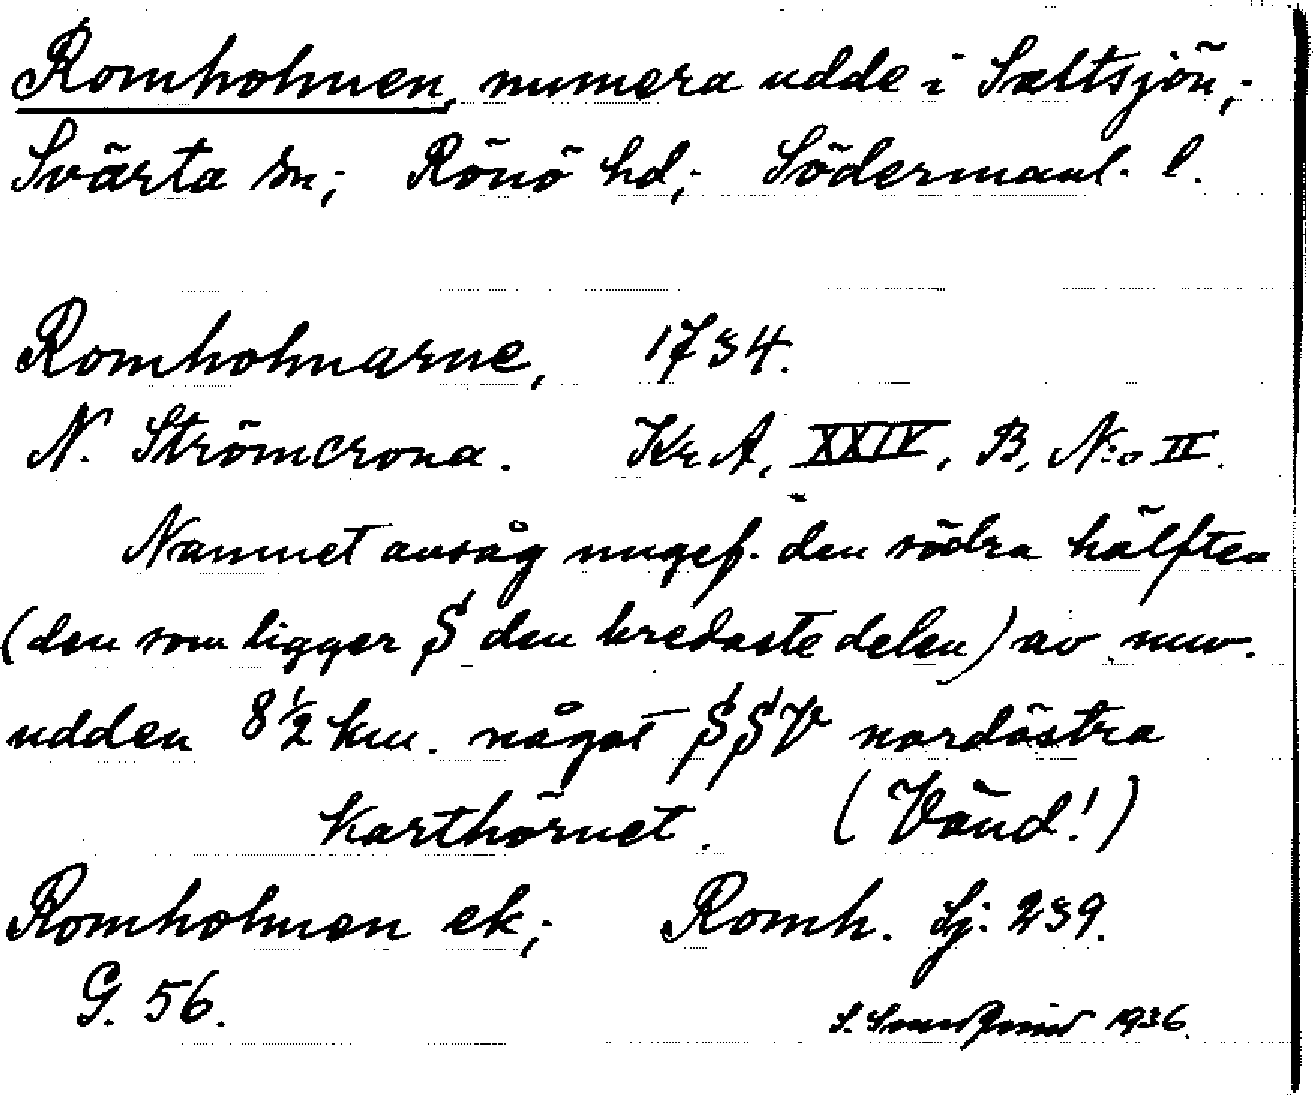 Romholmen, numera udde i Saltsjön;
Svärta sn; Rönö hd; Södermanl. l.
Romholmarne, 1734.
N. Strömcrona. Kr. A, XXIV, B, N:o II.
Namnet avsåg ungef. den södra hälften
(den som ligger S den bredaste delen) av nuv.
udden 8 1/2 km. något SSV nordöstra
karthörnet. (Vänd!)
Romholmen ek; Romh. Sj: 239.
G. 56.
S. 1936.